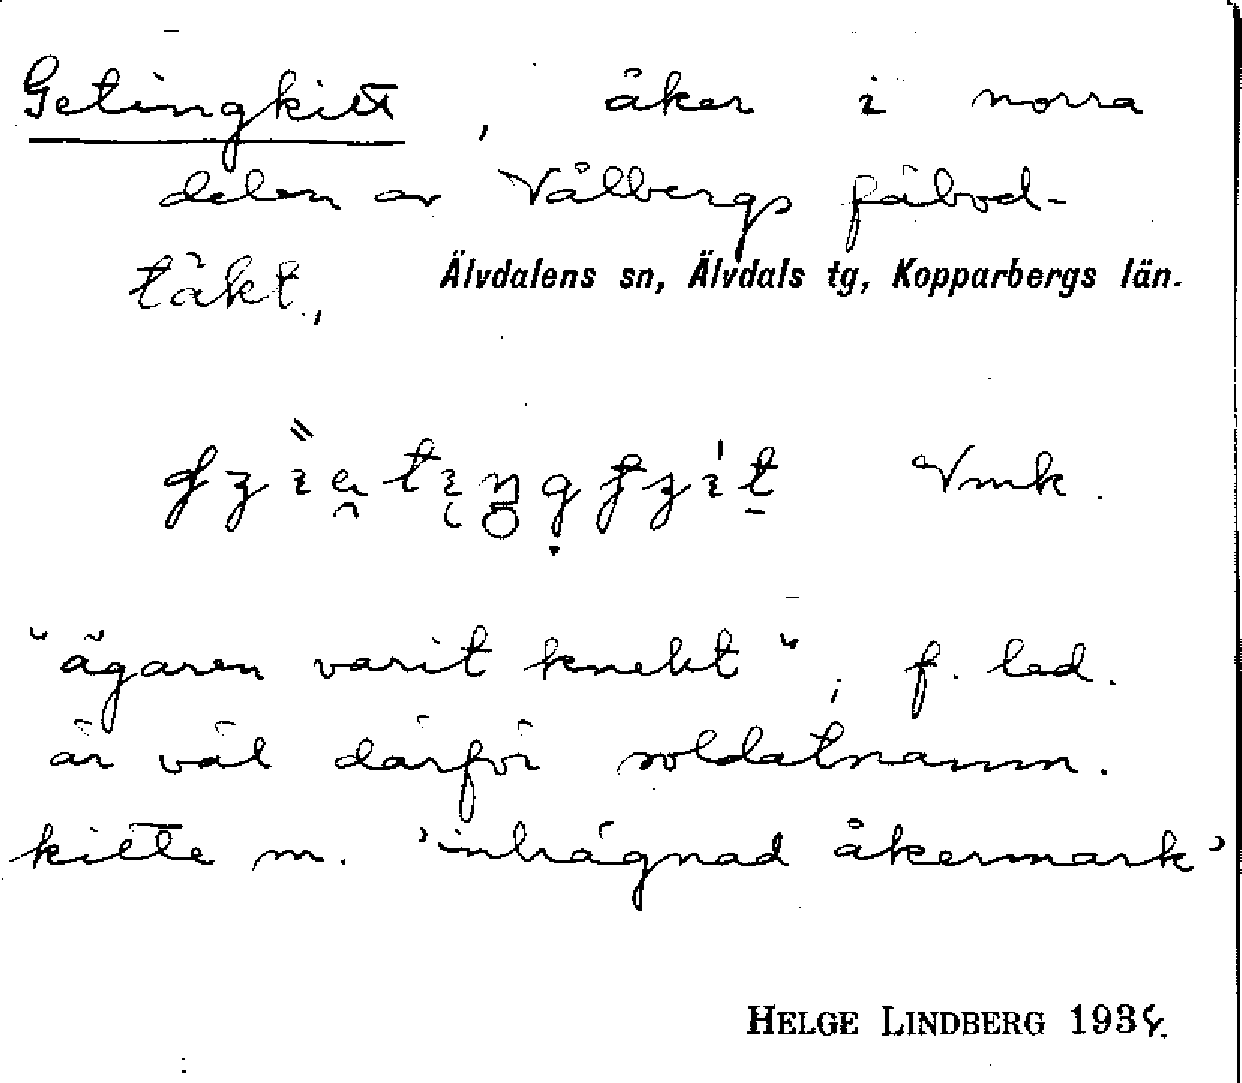 Getingkitt, åker i norra
delen av Vålbergs fäbod-
täkt., Älvdalens sn, Älvdals tg, Kopparbergs län.
Vmk.
"ägaren varit knekt"; f. led.
är väl därför soldatnamn.
kitte m. 'inhägnad åkermark'
HELGE LINDBERG 1934.